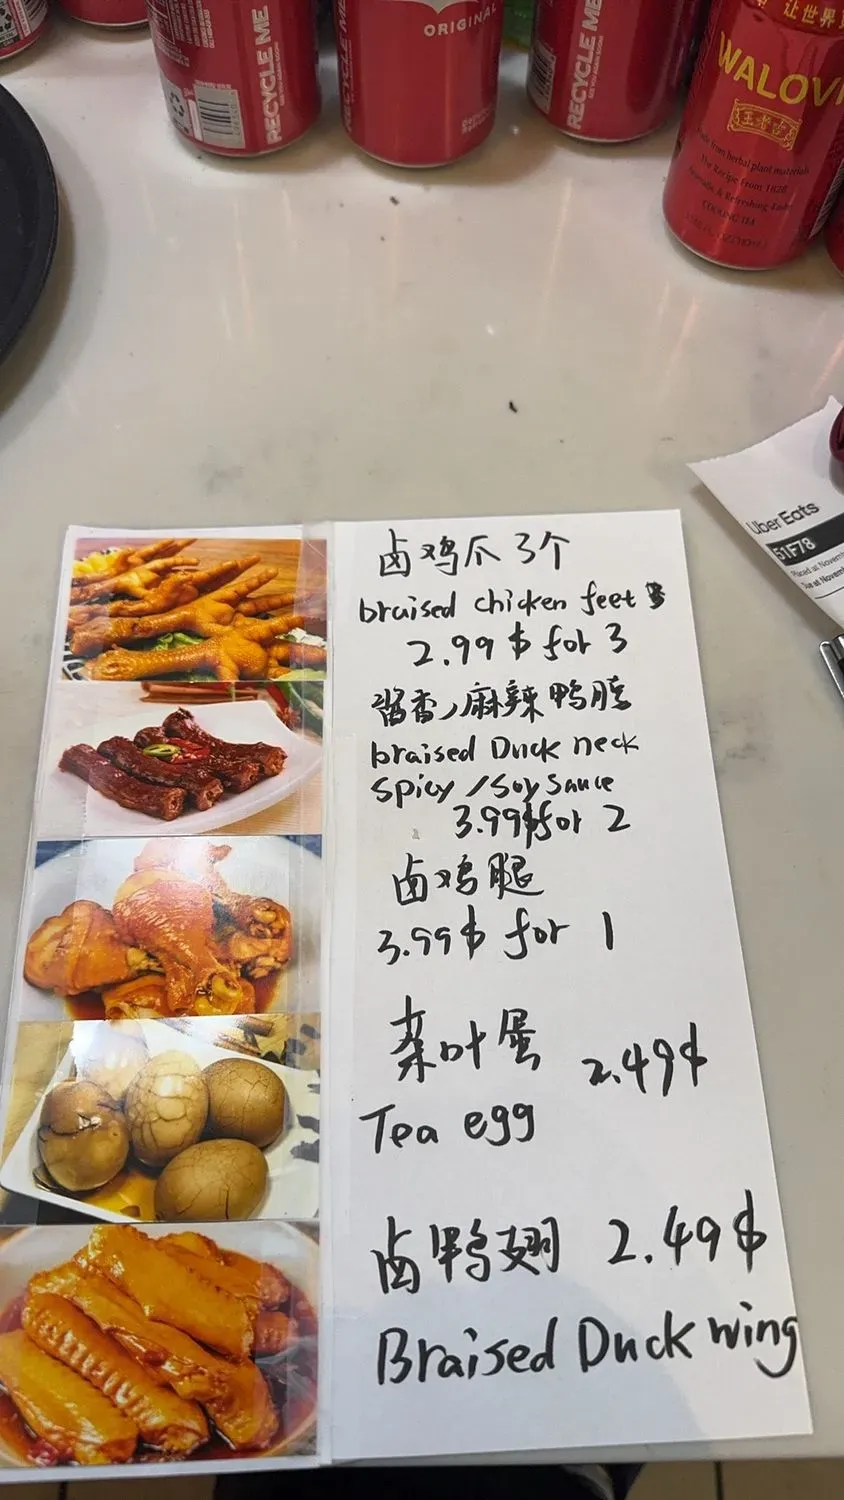 RECYCLE ME
ORIGINAL
RECYCLE ME
让世界
WALOVI
王老吉
The Recipe From 1828
COOLING TEA
Uber Eats
51F78
卤鸡爪 3个
braised chicken feet
2.99 $ for 3
酱香/麻辣鸭脖
braised Duck neck
spicy /Soy Sauce
3.99$ for 2
卤鸡腿
3.99$ for 1
茶叶蛋 2.49$
Tea egg
卤鸭翅 2.49$
Braised Duck wing